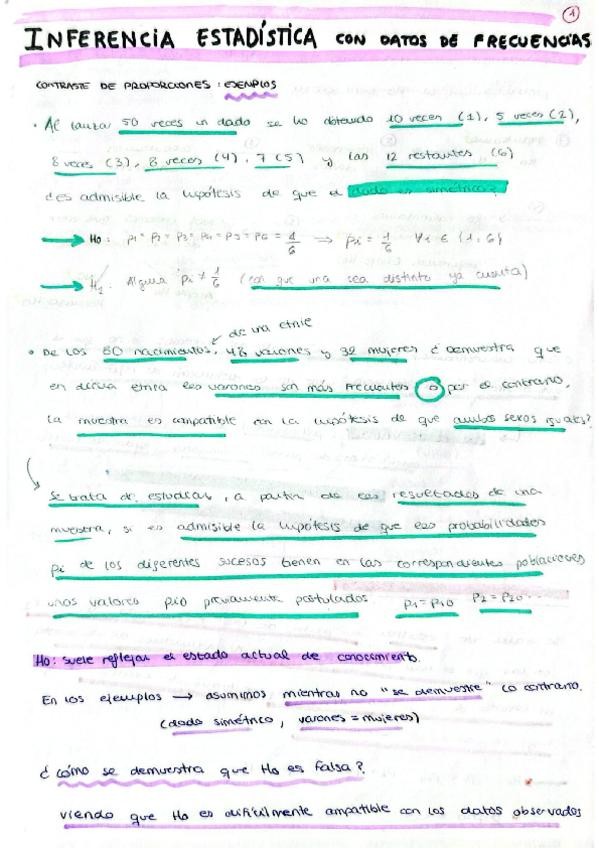 1
INFERENCIA ESTADÍSTICA CON DATOS DE FRECUENCIAS
CONTRASTE DE PROPORCIONES: EJEMPLOS
• Al lanzar 50 veces un dado se ha obtenido 10 veces (1), 5 veces (2),
8 veces (3), 8 veces (4), 7 (5) y las 12 restantes (6)
¿es admisible la hipótesis de que el dado es simétrico?
→ H0: p1 = p2 = p3 = p4 = p5 = p6 = 1/6 ⇒ pi = 1/6 ∀i ∈ {1,6}
→ H1: Alguna pi ≠ 1/6 (con que una sea distinta ya cuenta)
de una etnia
• De los 80 nacimientos, 48 varones y 32 mujeres ¿Demuestra que
en dicha etnia los varones son más frecuentes o por el contrario,
la muestra es compatible con la hipótesis de que ambos sexos iguales?
Se trata de estudiar, a partir de los resultados de una
muestra, si es admisible la hipótesis de que las probabilidades
pi de los diferentes sucesos tienen en las correspondientes poblaciones
unos valores pi0 previamente postulados p1 = p10 p2 = p20 ...
H0: suele reflejar el estado actual de conocimiento.
En los ejemplos → asumimos mientras no "se demuestre" lo contrario.
(dado simétrico, varones = mujeres)
¿cómo se demuestra que H0 es falsa?
viendo que H0 es difícilmente compatible con los datos observados